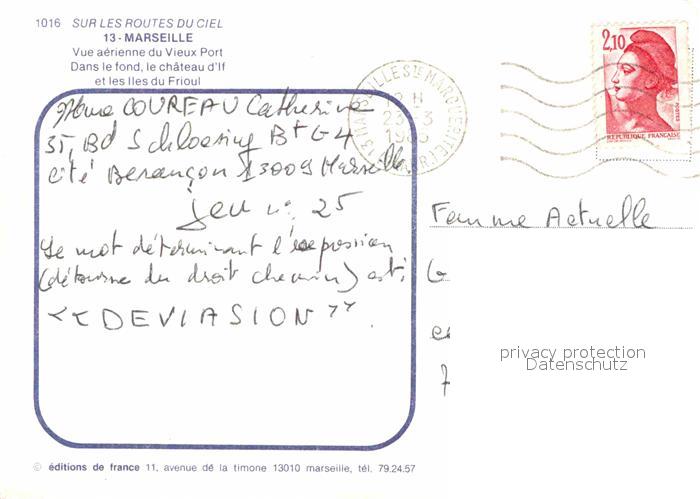 1016 SUR LES ROUTES DU CIEL
13 - MARSEILLE
Vue aérienne du Vieux Port
Dans le fond, le château d'If
et les Iles du Frioul
Mme COUREAU Catherine
35, Bd Schloesing Bt G4
cité Besançon 13009 Marseille.
jeu n° 25
Le mot déterminant l'expression
(détourne du droit chemin) est:
<< DEVIASION >>.
13 MARSEILLE Ste MARGUERITE
12 H
23-3
2,10
POSTES
REPUBLIQUE FRANÇAISE
Femme Actuelle
privacy protection
Datenschutz
© éditions de france 11, avenue de la timone 13010 marseille, tél. 79.24.57